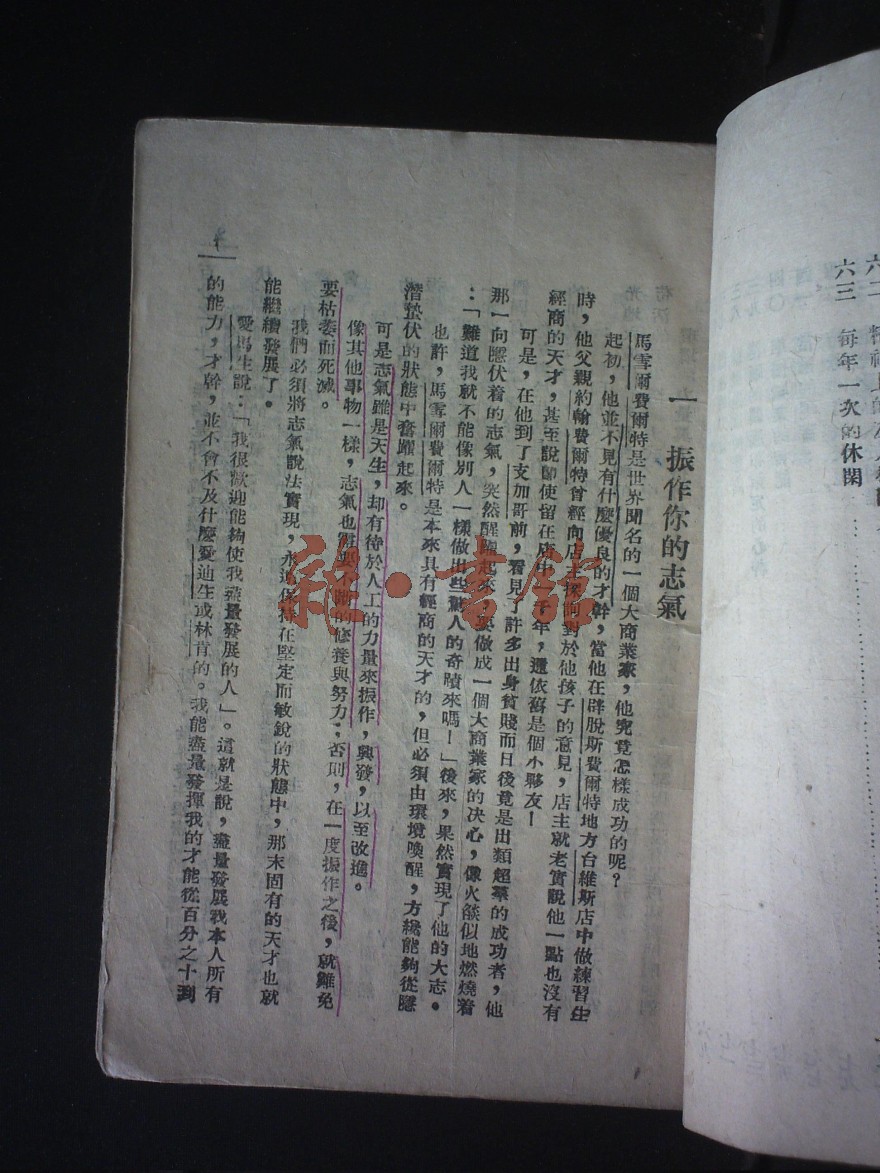 六三 每年一次的休閑
一 振作你的志氣
馬雪爾費爾特是世界聞名的一個大商業家，他究竟怎樣成功的呢？
起初，他並不見有什麼優良的才幹，當他在辟脫斯費爾特地方台維斯店中做練習生
時，他父親約翰費爾特曾經向店主探詢對於他孩子的意見，店主就老實說他一點也沒有
經商的天才，甚至說卽使留在店中一千年，還依舊是個小夥友！
可是，在他到了支加哥前，看見了許多出身貧賤而日後竟是出類超羣的成功者，他
那一向隱伏着的志氣，突然醒起來，要做成一個大商業家的決心，像火燄似地燃燒着
：「難道我就不能像別人一樣做出些驚人的奇蹟來嗎！」後來，果然實現了他的大志。
也許，馬雪爾費爾特是本來具有經商的天才的，但必須由環境喚醒，方纔能夠從隱
潛蟄伏的狀態中奮躍起來。
可是志氣雖是天生，却有待於人工的力量來振作，興發，以至改進。
像其他事物一樣，志氣也需要不斷的修養與努力；否則，在一度振作之後，就難免
要枯萎而死滅。
我們必須將志氣設法實現，永遠保持在堅定而敏銳的狀態中，那末固有的天才也就
能繼續發展了。
愛馬生說：「我很歡迎能夠使我盡量發展的人」。這就是說，盡量發展我本人所有
的能力，才幹，並不會不及什麼愛迪生或林肯的。我能盡量發揮我的才能從百分之十到
雜·書館